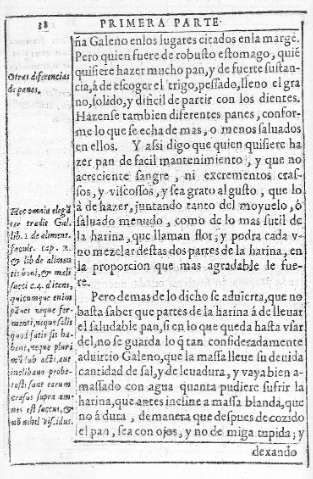 18 PRIMERA PARTE.
ña Galeno enlos lugares citados enla margẽ.
Pero quien fuere de robusto estomago, quiẽ
quisiere hazer mucho pan, y de fuerte sustan-
cia, à de escoger el trigo, pessado, lleno el gra
no, solido, y dificil de partir con los dientes.
Hazense tambien diferentes panes, confor-
me lo que se echa de mas, o menos saluados
en ellos. Y assi digo que quien quisiere ha
zer pan de facil mantenimiento, y que no
acreciente sangre, ni excrementos cras-
sos, y viscossos, y sea grato al gusto, que lo
à de hazer, juntando tanto del moyuelo, ò
saluado menudo, como de lo mas sutil de
la harina, que llaman flor; y podra cada v-
no mezclar destas dos partes de la harina, en
la proporcion que mas agradable le fue-
re.
Pero demas de lo dicho se aduierta, que no
basta saber que partes de la harina à de lleuar
el saludable pan, si en lo que queda hasta vsar
del, no se guarda lo q̃ tan consideradamente
aduirtio Galeno, que la massa lleue su deuida
cantidad de sal, y de leuadura, y vaya bien a-
massado con agua quanta pudiere sufrir la
harina, que antes incline a massa blanda, que
no â dura, demanera que despues de cozido
el pan, sea con ojos, y no de miga tupida; y
dexando
Otras diferencias
de panes.
Hęc omnia elegã
ter tradit Gal.
lib. 1. de aliment.
facult. cap. 2.
& lib de alimen
tis boni, & mali
succi c. 4. dicens,
quicumque enim
panes neque fer-
menti, neque salis
quod satis sit ha-
bent, neque